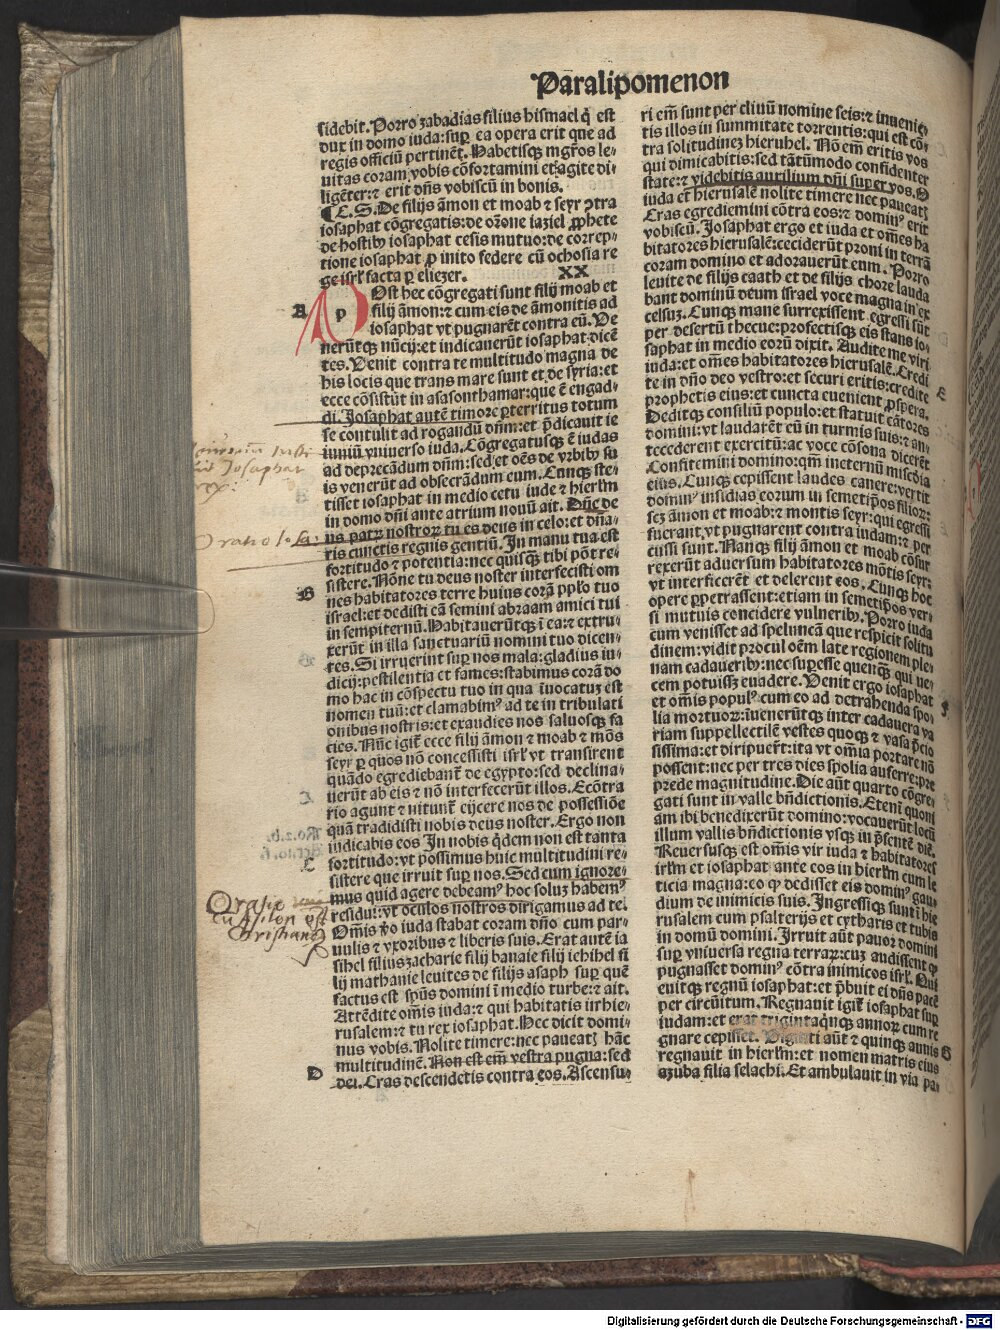 Paralipomenon
sidebit. Porro zabadias filius hismael q̄ est
dux in domo iuda: sup̄ ea opera erit que ad
regis officiū pertinēt. Habetisqȝ mgr̄os le⸗
uitas coram vobis cōfortamini et agite di⸗
ligēter: ⁊ erit dn̄s vobiscū in bonis.
¶ C. S. De filijs āmon et moab ⁊ seyr ꝯtra
iosaphat cōgregatis: de or̄one iaziel ꝓphete
de hostibꝰ iosaphat cesis mutuo: de correp⸗
tione iosaphat ꝓ inito federe cū ochosia re
ge isrł facta ꝑ eliezer. XX
A
p
Ost hec cōgregati sunt filij moab et
filij āmon: ⁊ cum eis de āmonitis ad
iosaphat vt pugnarēt contra eū. Ve
nerūtqȝ nūcij: et indicauerūt iosaphat dicē
tes. Venit contra te multitudo magna de
his locis que trans mare sunt et de syria: et
ecce cōsistūt in asasonthamar: que ē engad⸗
di. Iosaphat autē timore ꝑterritus totum
se contulit ad rogandū dn̄m: et p̄dicauit ie
iuniū vniuerso iuda. Cōgregatusqȝ ē iudas
ad deprecādum dn̄m: sed et oēs de vrbibꝰ su
is venerūt ad obsecrādum eum. Cunqȝ ste⸗
tisset iosaphat in medio cetu iude ⁊ hierłm
in domo dn̄i ante atrium nouū ait. Dn̄e de
us patꝝ nostroꝝ tu es deus in celo: et dn̄a⸗
ris cunctis regnis gentiū. In manu tua est
fortitudo ⁊ potentia: nec quisqȝ tibi pōt re⸗
sistere. Nōne tu deus noster interfecisti om
B
nes habitatores terre huius corā pp̄lo tuo
israel: et dedisti eā semini abraam amici tui
in sempiternū. Habitauerūtqȝ ī ea: ⁊ extru⸗
xerūt in illa sanctuariū nomini tuo dicen⸗
tes. Si irruerint sup̄ nos mala: gladius iu⸗
dicij: pestilentia et fames: stabimus corā do
mo hac in cōspectu tuo in qua īuocatuȝ est
nomen tuū: et clamabimꝰ ad te in tribulati
onibus nostris: et exaudies nos saluosqȝ fa
cies. Nūc igiť ecce filij āmon ⁊ moab ⁊ mōs
seyr ꝑ quos nō concessisti isrł vt transirent
quādo egrediebanť de egypto: sed declina⸗
uerūt ab eis ⁊ nō interfecerūt illos. Ecōtra
rio agunt ⁊ nitunť eijcere nos de possessiōe
quā tradidisti nobis deus noster. Ergo non
iudicabis eos In nobis q̄dem non est tanta
C
fortitudo: vt possimus huic multitudini re⸗
sistere que irruit sup̄ nos. Sed cum ignore⸗
mus quid agere debeamꝰ hoc soluȝ habemꝰ
residui: vt oculos nostros dirigamus ad te.
Om̄is v̄o iuda stabat coram dn̄o cum par⸗
uulis ⁊ vxoribus ⁊ liberis suis. Erat autē ia
sihel filius zacharie filij banaie filij iehihel fi
lij mathanie leuites de filijs asaph sup̄ quē
factus est spūs domini ī medio turbe: ⁊ ait.
Attēdite om̄is iuda: ⁊ qui habitatis ī rhie⸗
rusalem: ⁊ tu rex iosaphat. Hec dicit domi⸗
nus vobis. Nolite timere: nec paueatȝ hāc
multitudinē. Non est em̄ vestra pugna: sed
D
dei. Cras descendetis contra eos. Ascensu⸗
ri em̄ sunt per cliuū nomine seis: ⁊ inuenie⸗
tis illos in summitate torrentis: qui est cō⸗
tra solitudineȝ hieruhel. Nō em̄ eritis vos
qui dimicabitis: sed tātūmodo confidenter
state: ⁊ videbitis auxilium dn̄i super vos. O
iuda et hierusalē nolite timere nec paueatȝ
Cras egrediemini cōtra eos: ⁊ dominꝰ erit
vobiscū. Iosaphat ergo et iuda et om̄es ha
bitatores hierusalē: ceciderūt proni in terrā
coram domino et adorauerūt eum. Porro
leuite de filijs caath et de filijs chore lauda
bant dominū deum israel voce magna in ex
celsuȝ. Cunqȝ mane surrexissent egressi sūt
per desertū thecue: profectisqȝ eis stans io⸗
saphat in medio eorū dixit. Audite me viri
iuda: et om̄es habitatores hierusalē. Credi
te in dn̄o deo vestro: et securi eritis: credite
E
prophetis eius: et cuncta euenient ꝓspera.
Deditqȝ consiliū populo: et statuit cātores
domini: vt laudarēt eū in turmis suis: ⁊ an⸗
tecederent exercitū: ac voce cōsona dicerēt
Confitemini domino: qm̄ ineternū mis̄c̄dia
eius. Cunqȝ cepissent laudes canere: vertit
dominꝰ insidias eorum in semetip̄os filioꝝ:
scȝ āmon et moab: ⁊ montis seyr: qui egressi
fuerant vt pugnarent contra iudam: ⁊ per
cussi sunt. Nanqȝ filij āmon et moab cōsur
rexerūt aduersum habitatores mōtis seyr:
vt interficerēt et delerent eos. Cunqȝ hoc
opere ꝑpetrassent: etiam in semetip̄os ver⸗
si mutuis concidere vulneribꝰ. Porro iuda
cum venisset ad speluncā que respicit solitu
dinem: vidit procul oēm late regionem ple⸗
nam cadaueribꝰ: nec superesse quenqȝ qui ne⸗
cem potuissȝ euadere. Venit ergo iosaphat
F
et om̄is populꝰ cum eo ad detrahenda spo⸗
lia mortuoꝝ: īuenerūtqȝ inter cadauera va
riam suppellectilē vestes quoqȝ ⁊ vasa p̄cio
sissima: et diripuerť: ita vt om̄ia portare nō
possent: nec per tres dies spolia auferre: pre
prede magnitudine. Die aūt quarto cōgre⸗
gati sunt in valle bn̄dictionis. Etenī quoni
am ibi benedixerūt domino: vocauerūt locū
illum vallis bn̄dictionis vsqȝ in p̄sentē diē.
Reuersusqȝ est om̄is vir iuda ⁊ habitatores
irłm et iosaphat ante eos in hierłm cum le
ticia magna: eo ꝙ dedisset eis dominꝰ gau⸗
dium de inimicis suis. Ingressiqȝ sunt ī hie
rusalem cum psalterijs et cytharis et tubis
in domū domini. Irruit aūt pauor domini
sup̄ vniuersa regna terraꝝ: cuȝ audissent ꝙ
pugnasset dominꝰ cōtra inimicos isrł. Qui
euitqȝ regnū iosaphat: et p̄buit ei dn̄s pacē
per circūitum. Regnauit igiť iosaphat sup̄
iudam: et erat trigintaq̄nqȝ annoꝝ cum re
gnare cepisset. Viginti aūt ⁊ quinqȝ annis
G
regnauit in hierłm: et nomen matris eius
azuba filia selachi. Et ambulauit in via pa⸗
Josaphat
rex:
Oratio Josa:
Oratio
Christiano
Digitalisierung gefördert durch die Deutsche Forschungsgemeinschaft - DFG